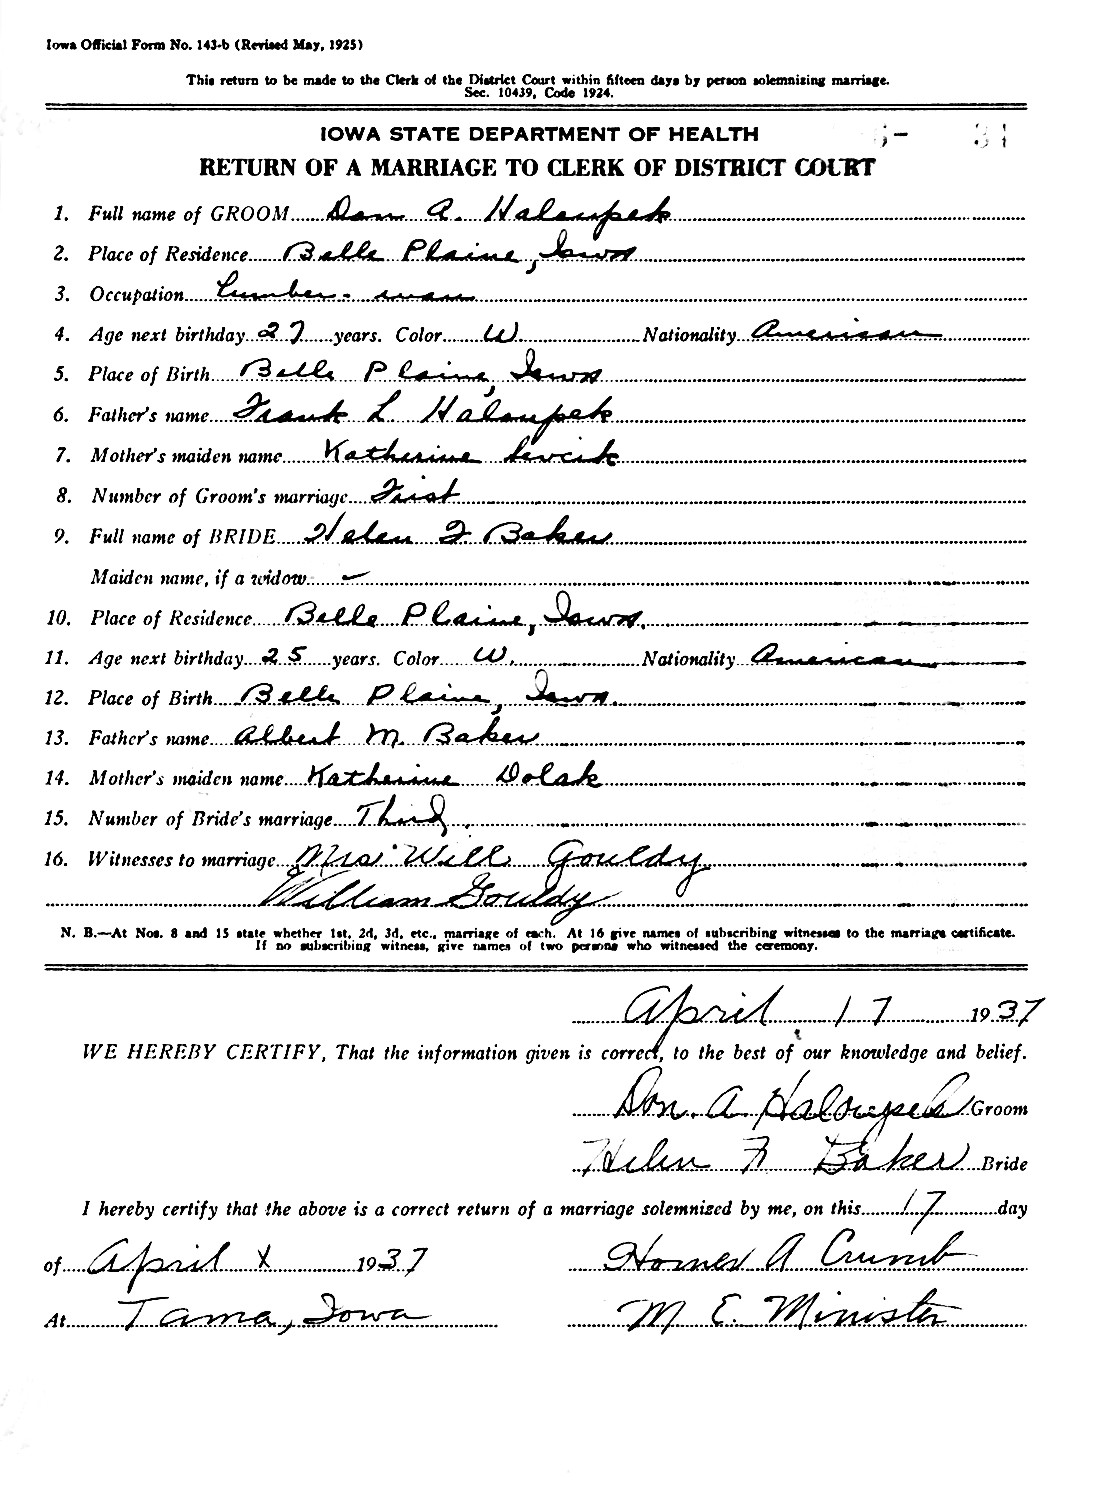 Iowa Official Form No. 143-b (Revised May, 1925)
This return to be made to the Clerk of the District Court within fifteen days by person solemnizing marriage.
Sec. 10439, Code 1924.
IOWA STATE DEPARTMENT OF HEALTH
RETURN OF A MARRIAGE TO CLERK OF DISTRICT COURT
1. Full name of GROOM Don A. Haloupek
2. Place of Residence Belle Plaine, Iowa
3. Occupation Lumber-man
4. Age next birthday 27 years. Color W Nationality American
5. Place of Birth Belle Plaine, Iowa
6. Father's name Frank L Haloupek
7. Mother's maiden name Katherine Sevcik
8. Number of Groom's marriage First
9. Full name of BRIDE Helen F Baker
Maiden name, if a widow
10. Place of Residence Belle Plaine, Iowa.
11. Age next birthday 25 years. Color W. Nationality American
12. Place of Birth Belle Plaine, Iowa.
13. Father's name Albert M. Baker
14. Mother's maiden name Katherine Dolak
15. Number of Bride's marriage Third.
16. Witnesses to marriage Mrs Will Gouldy
William Gouldy
N. B.—At Nos. 8 and 15 state whether 1st, 2d, 3d, etc., marriage of each. At 16 give names of subscribing witnesses to the marriage certificate.
If no subscribing witness, give names of two persons who witnessed the ceremony.
April 17 1937
WE HEREBY CERTIFY, That the information given is correct, to the best of our knowledge and belief.
Don. A. Haloupek Groom
Helen F. Baker Bride
I hereby certify that the above is a correct return of a marriage solemnized by me, on this 17 day
of April X 1937 Homer A Crumb
At Tama, Iowa M E. Minister